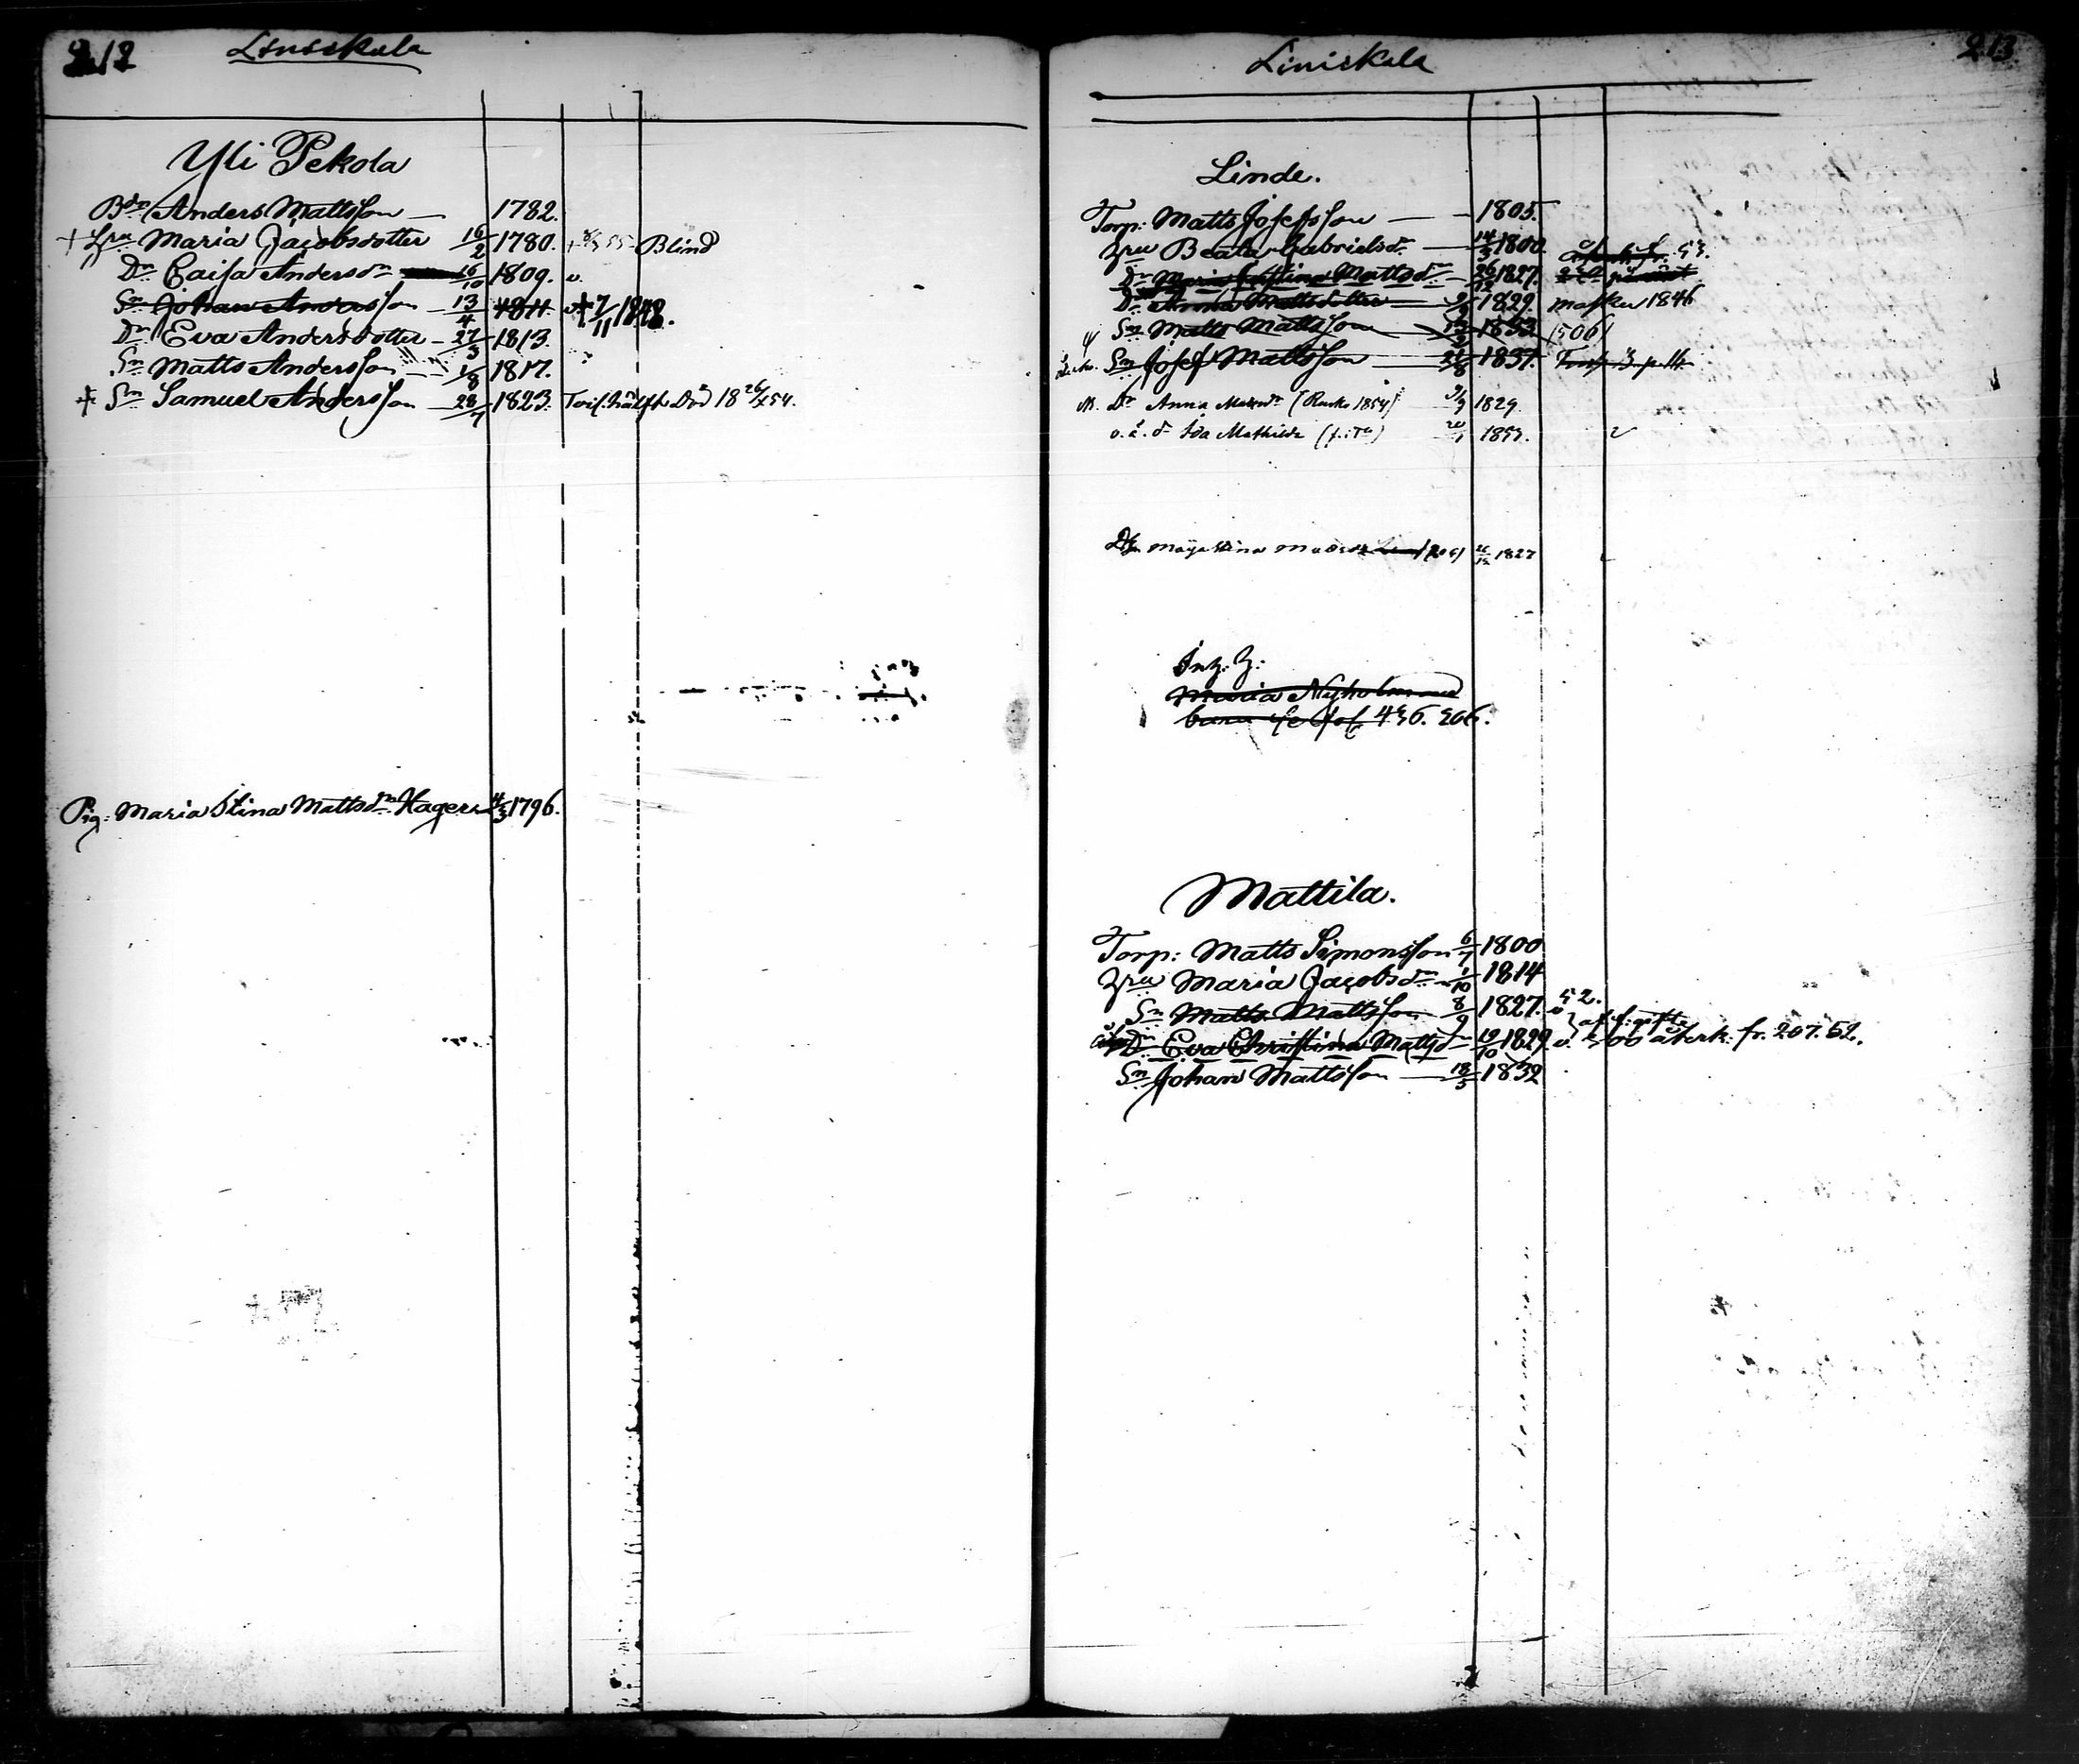 212 Liniskala
Yli Pekola
Bdn Anders Mattsson — 1782.
+ Hru Maria Jacobsdotter 16/2 1780. Blind
Dr Caisa Andersdr 16/10 1809. v.
Sn Johan Andersson 13/4 1811. + 7/11 1848.
Dr Eva Andersdotter – 27/3 1813.
Sn Matts Andersson 1/8 1817.
+ Sn Samuel Andersson 28/7 1823. Död 18 26/4 54.
Pig: Maria Stina Mattsdr Hager 4/3 1796.
Liniskala 213
Linde.
Torp: Matts Josefsson — 1805.
Hru Beata Gabrielsdr — 14/3 1800
Dr Maria Christina Mattsdr 26/12 1827.
Dr Anna Mattsdotter 9/9 1829. Masku 1846
Sn Matts Mattsson 1833. 506
Sn Josef Mattsson 21/8 1837.
Dr Anna Mattsdr (Rusko 1854) 9/9 1829.
o. ä. dr Ida Mathilda 20/1 1853.
Maja Stina 26/12 1827
Inh. H:
Maria Nyholm
barn se Jos. 456. 506.
Mattila.
Torp: Matts Simonsson 6/7 1800
Hru Maria Jacobsdr 1/10 1814
Sn Matts Mattsson 8/9 1827. v 52.
Dr Eva Christina Mattsdr 19/10 1829. v. återk. fr. 207. 52.
Sn Johan Mattsson — 18/5 1832